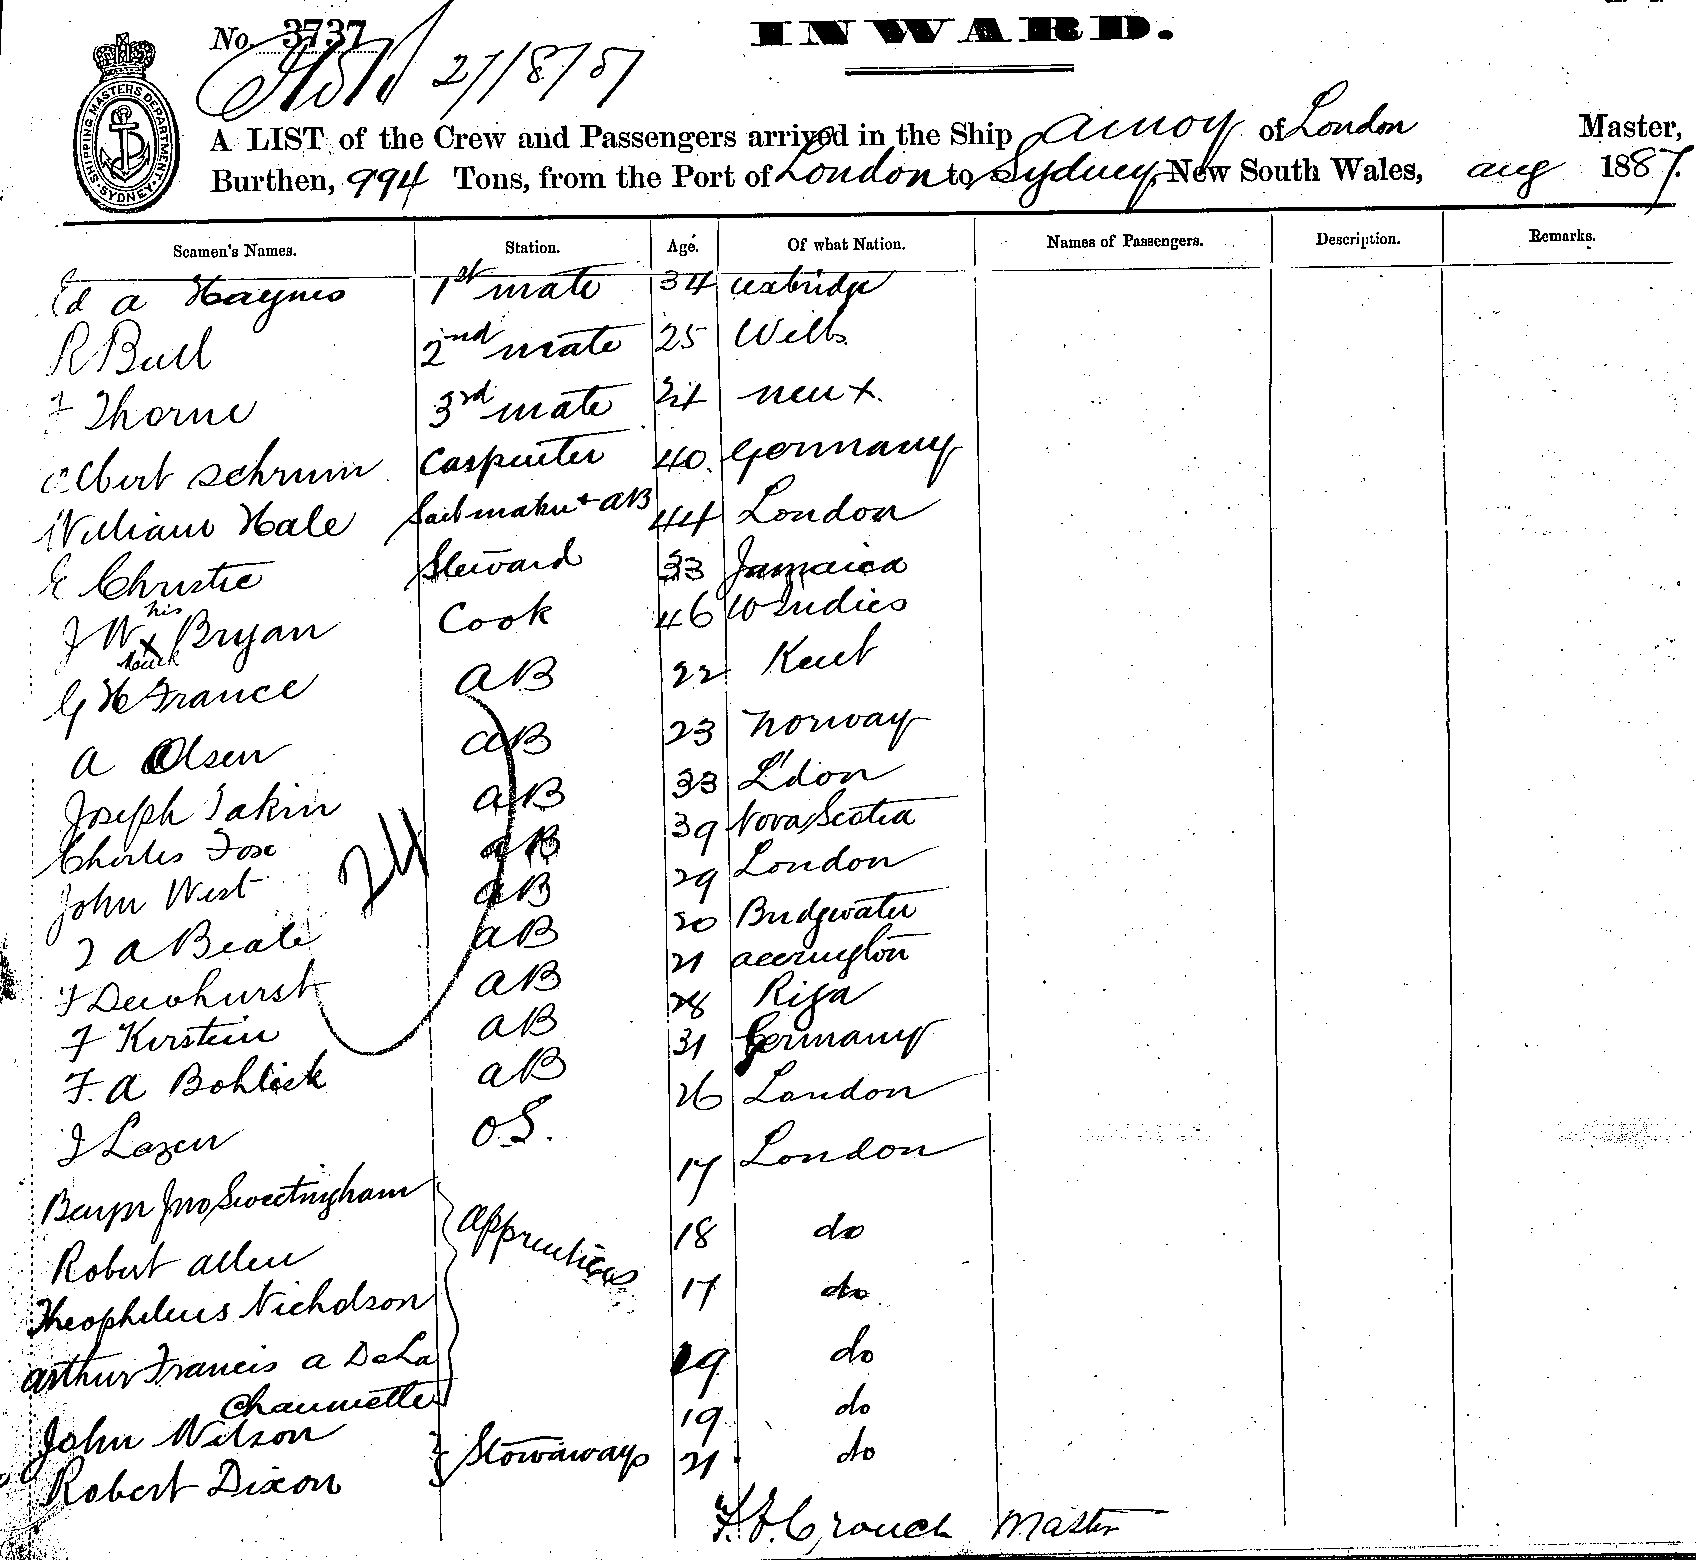 No. 3737
INWARD.
27/8/87
SHIPPING MASTERS DEPARTMENT SYDNEY
A LIST of the Crew and Passengers arrived in the Ship Amoy of London Master,
Burthen, 994 Tons, from the Port of London to Sydney, New South Wales, aug 1887.
Seamen's Names. Station. Age. Of what Nation. Names of Passengers. Description. Remarks.
Ed a Haynes 1st mate 34 uxbridge
R Bull 2nd mate 25 Wilts
F Thorne 3rd mate 24
albert Schrum Carpenter 40. Germany
William Hale Sailmaker + aB 44 London
E Christie Steward 33 Jamaica
J W his x mark Bryan Cook 46 W Indies
G H France aB 22 Kent
a Olsen aB 23 norway
Joseph Takin aB 33 L'don
Charles Fox aB 39 Nova Scotia
John West aB 29 London
24
a Beale aB 20 Bridgwater
F Dewhurst aB 21 accrington
F Kerstein aB 28 Riga
F. a Bohlick aB 31 Germany
J Lazen O.S. 26 London
Benjn Jno Sweetingham apprentices 17 London
Robert allen 18 do
Theophileus Nicholson 17 do
arthur Francis a DeLa
Chaumette 19 do
John Wilson Stowaways 19 do
Robert Dixon 21 do
F. J. Crouch Master